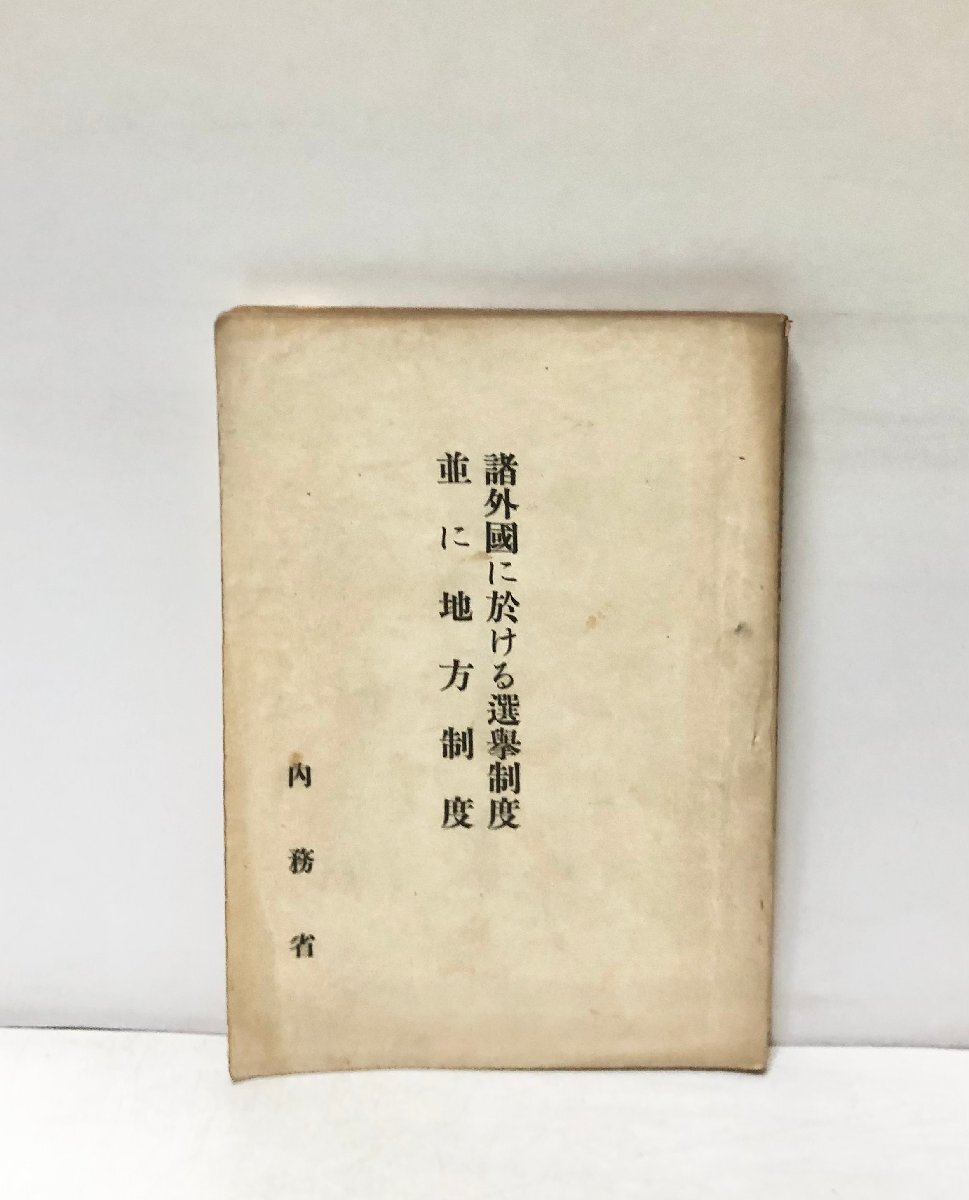 諸外國に於ける選擧制度
並に地方制度
內務省